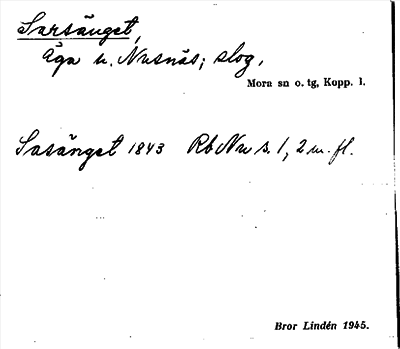 Sarsänget,
äga u. Nusnäs; slog,
Mora sn o. tg, Kopp. l.
Sasänget 1843 Rb Nu s. 1, 2 m. fl.
Bror Lindén 1945.